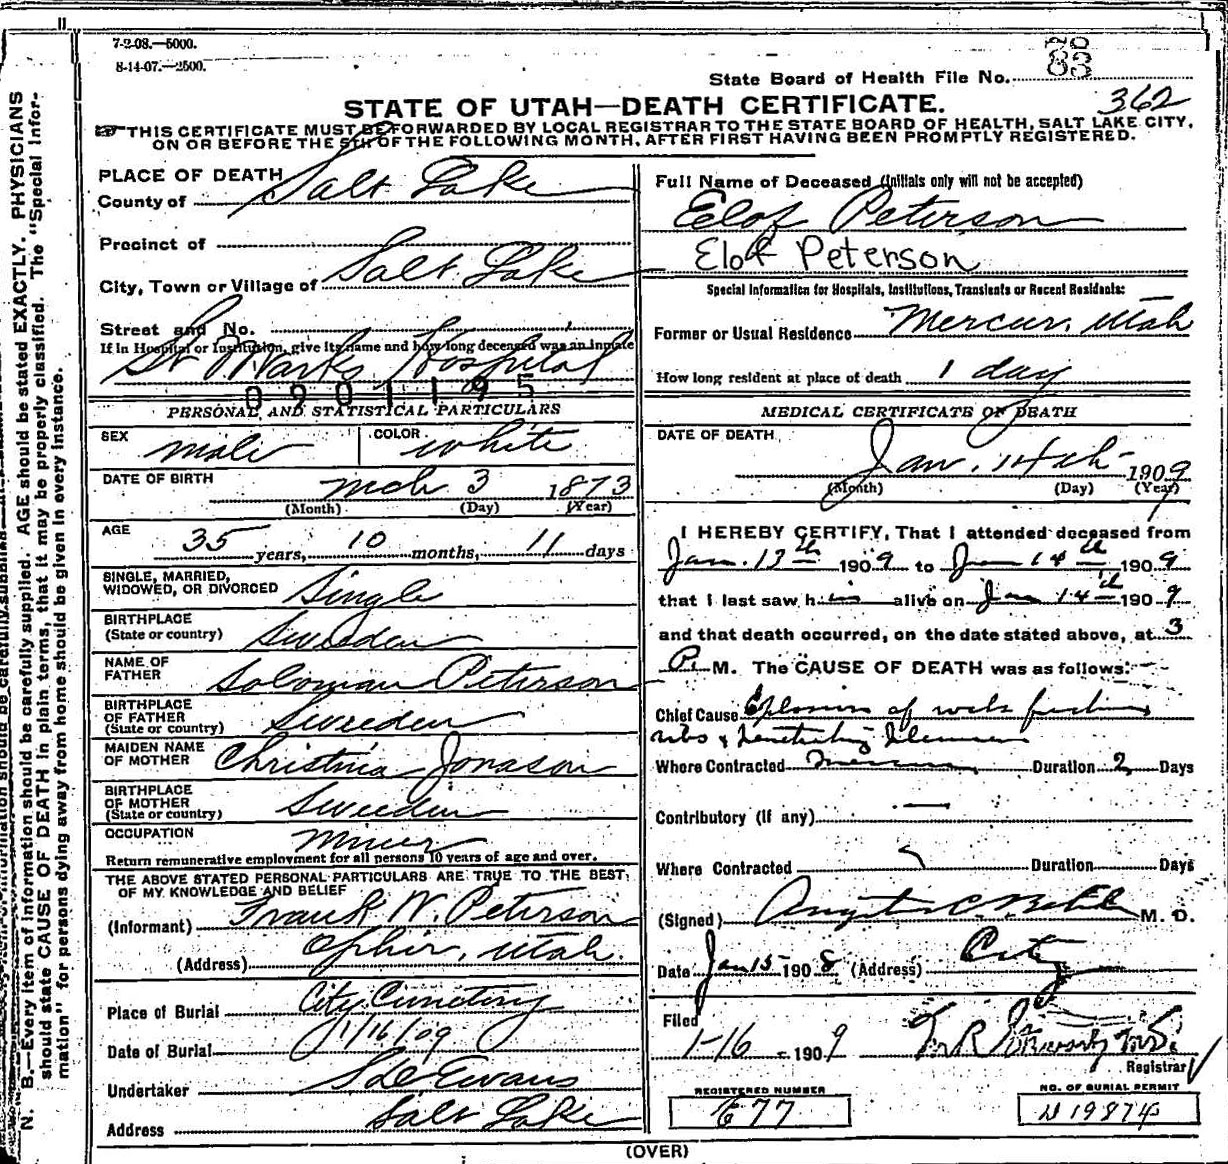 7-2-08.—5000.
8-14-07.—2500.
State Board of Health File No.
362
STATE OF UTAH—DEATH CERTIFICATE.
THIS CERTIFICATE MUST BE FORWARDED BY LOCAL REGISTRAR TO THE STATE BOARD OF HEALTH, SALT LAKE CITY,
ON OR BEFORE THE 5TH OF THE FOLLOWING MONTH, AFTER FIRST HAVING BEEN PROMPTLY REGISTERED.
PLACE OF DEATH
County of Salt Lake
Precinct of
City, Town or Village of Salt Lake
Street and No.
If in Hospital or Institution, give its name and how long deceased was an inmate
St Marks Hospital
0901195
PERSONAL AND STATISTICAL PARTICULARS
SEX male COLOR white
DATE OF BIRTH Mch 3 1873
(Month) (Day) (Year)
AGE 35 years, 10 months, 11 days
SINGLE, MARRIED,
WIDOWED, OR DIVORCED Single
BIRTHPLACE
(State or country) Sweeden
NAME OF
FATHER Soloman Peterson
BIRTHPLACE
OF FATHER
(State or country) Sweeden
MAIDEN NAME
OF MOTHER Christina Jonason
BIRTHPLACE
OF MOTHER
(State or country) Sweeden
OCCUPATION Miner
Return remunerative employment for all persons 10 years of age and over.
THE ABOVE STATED PERSONAL PARTICULARS ARE TRUE TO THE BEST
OF MY KNOWLEDGE AND BELIEF
(Informant) Frank W. Peterson
(Address) Ophir, Utah.
Place of Burial City Cemetery
Date of Burial 1/16/09
Undertaker Evans
Address Salt Lake
Full Name of Deceased (Initials only will not be accepted)
Eelof Peterson
Elof Peterson
Special Information for Hospitals, Institutions, Transients or Recent Residents:
Former or Usual Residence Mercur, Utah
How long resident at place of death 1 day
MEDICAL CERTIFICATE OF DEATH
DATE OF DEATH Jan. 14th 1909
(Month) (Day) (Year)
I HEREBY CERTIFY, That I attended deceased from
Jan. 13th 1909 to Jan 14th 1909
that I last saw him alive on Jan 14th 1909
and that death occurred, on the date stated above, at 3
P. M. The CAUSE OF DEATH was as follows:
Chief Cause Explosion of
ribs &
Where Contracted Mercur Duration 2 Days
Contributory (If any)
Where Contracted Duration Days
(Signed) M. D.
Date Jan 15 1908 (Address) City
Filed
1-16 - 1909
Registrar
REGISTERED NUMBER
677
NO. OF BURIAL PERMIT
19874
(OVER)
N. B.—Every item of information should be carefully supplied. AGE should be stated EXACTLY. PHYSICIANS
should state CAUSE OF DEATH in plain terms, that it may be properly classified. The "Special Infor-
mation" for persons dying away from home should be given in every instance.